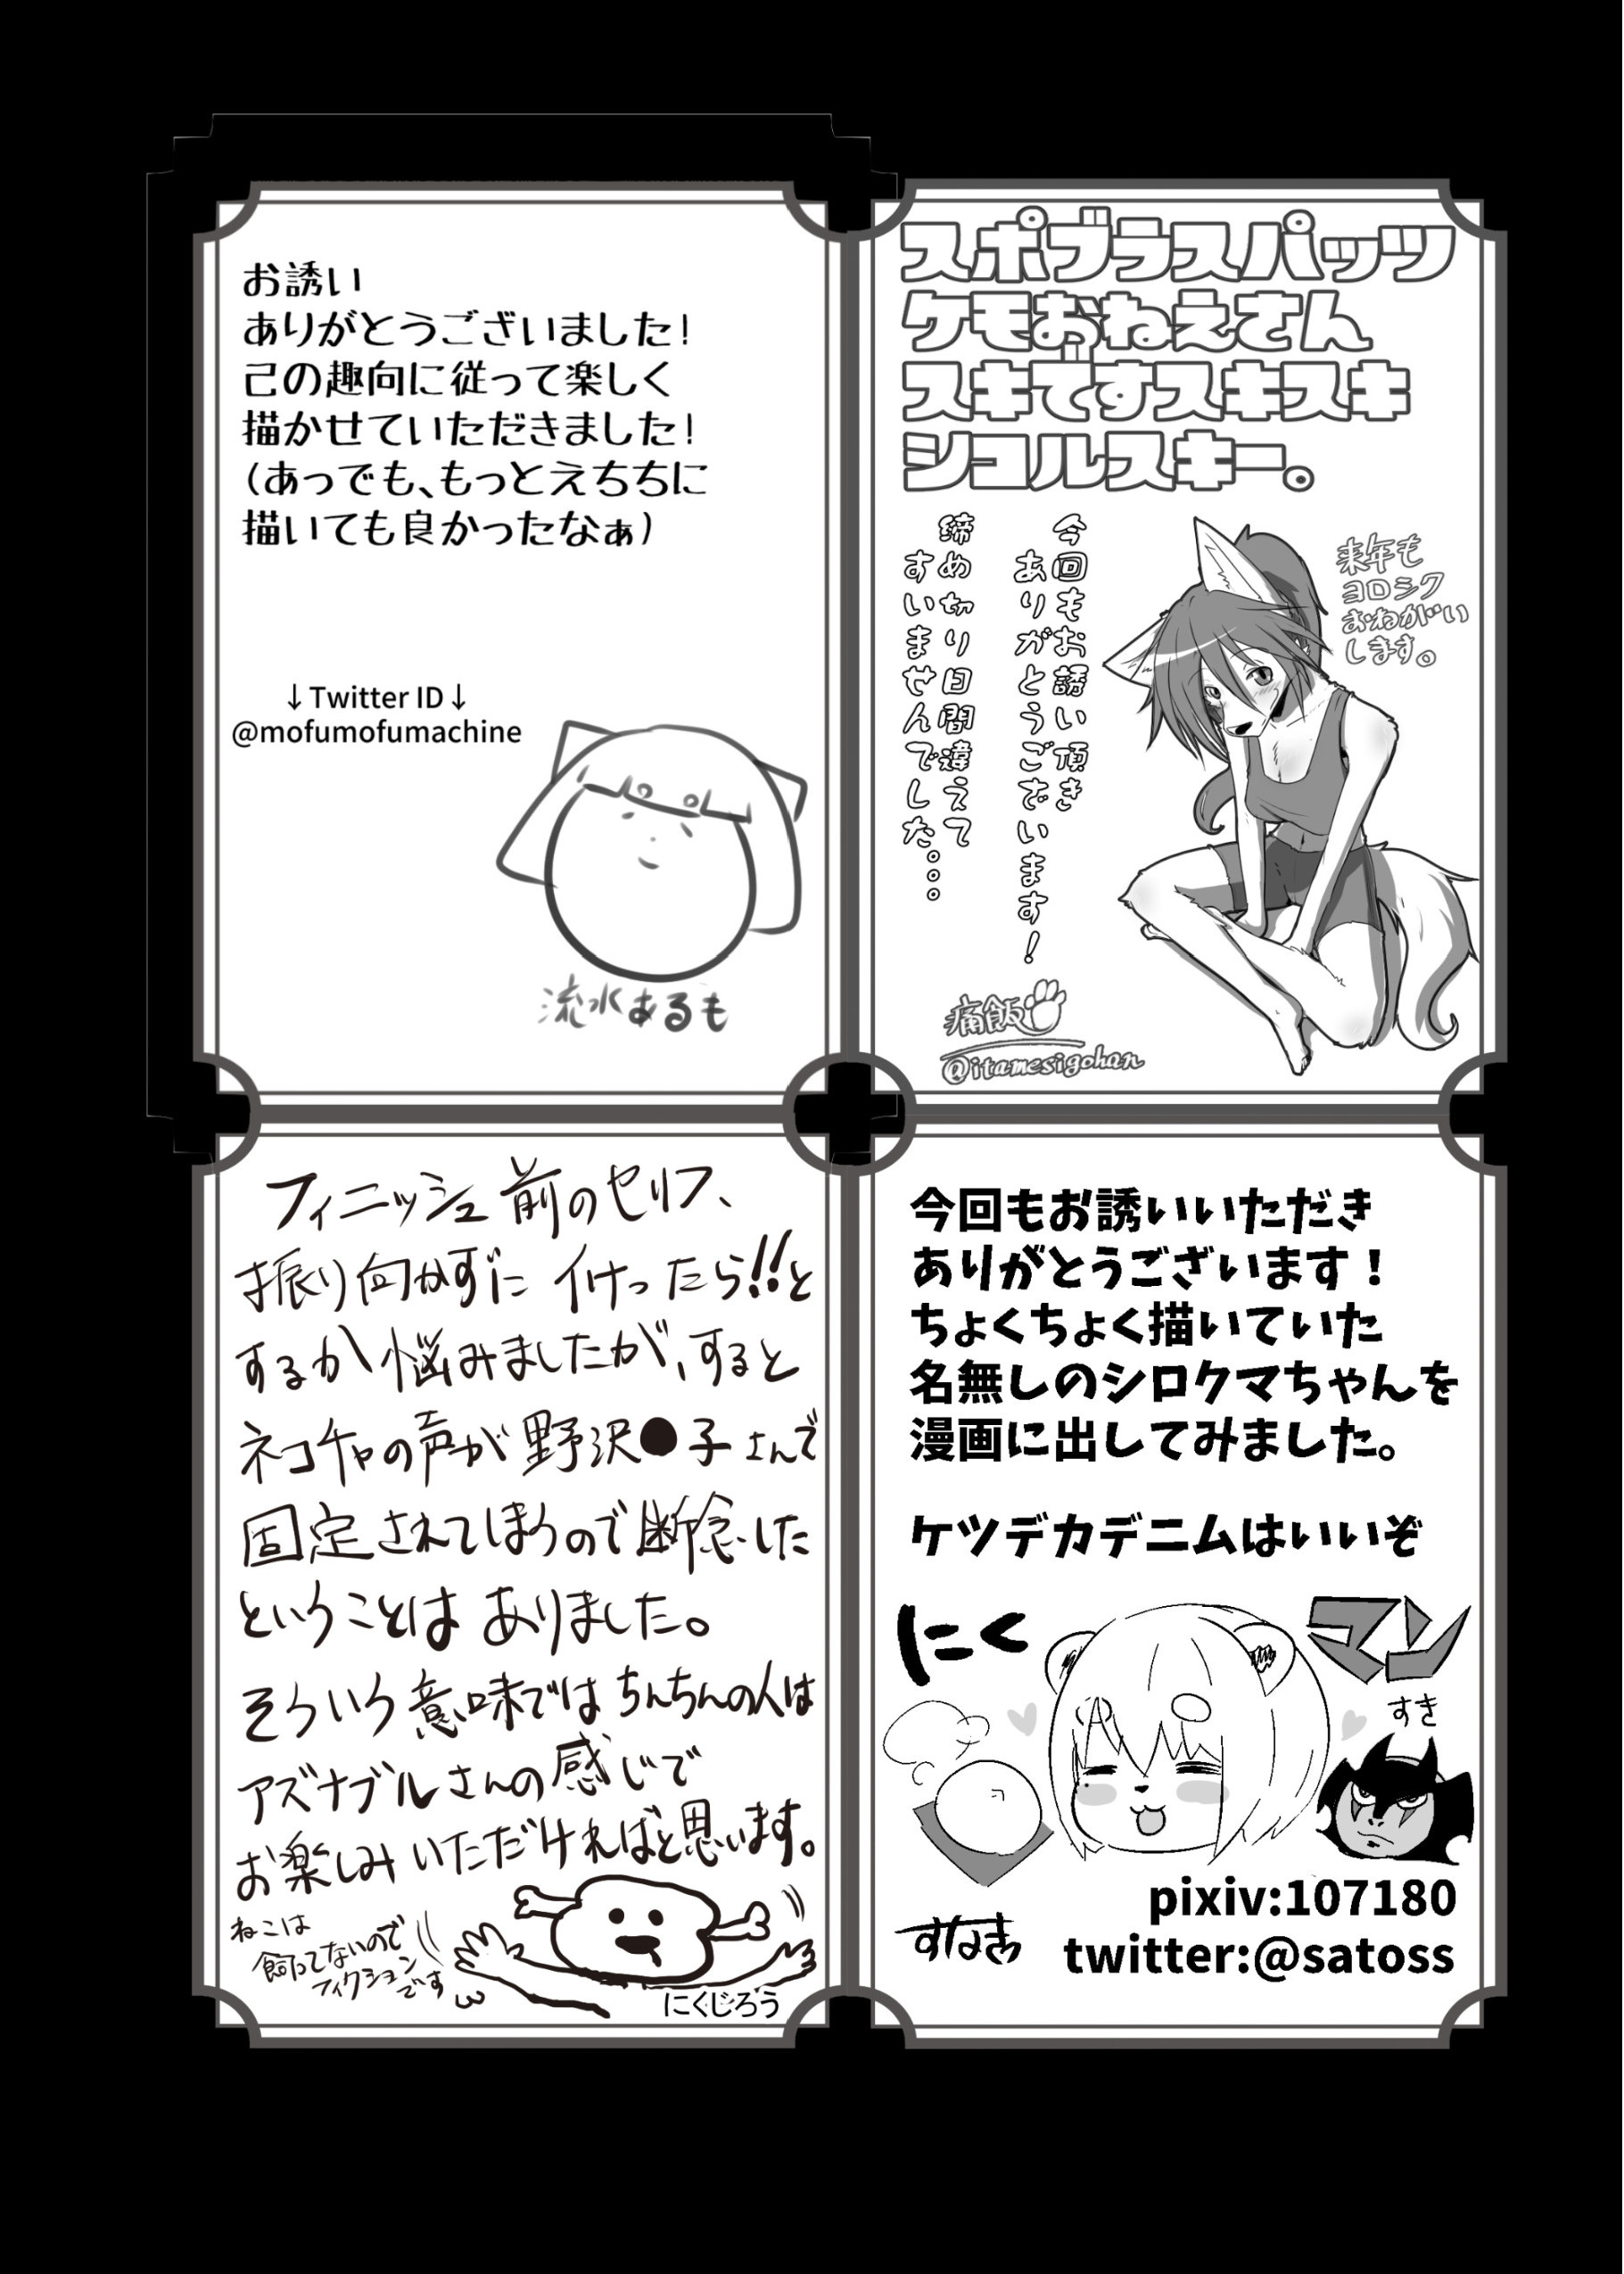 お誘い
ありがとうございました!
己の趣向に従って楽しく
描かせていただきました!
(あっでも、もっとえちちに
描いても良かったなぁ)
↓Twitter ID↓
@mofumofumachine
流水あるも
スポブラスパッツ
ケモおねえさん
スキですスキスキ
シコルスキー。
来年も
ヨロシク
おねがい
します。
今回もお誘い頂き
ありがとうございます!
締め切り日間違えて
すいませんでした...
痛飯
@itamesigohan
フィニッシュ前のセリフ、
振り向かずにイけったら!!と
するか悩みましたが、すると
ネコチャの声が野沢●子さんで
固定されてしまうので断念した
ということはありました。
そういう意味ではちんちんの人は
アズナブルさんの感じで
お楽しみいただければと思います。
ねこは
飼ってないので
フィクションです
にくじろう
今回もお誘いいただき
ありがとうございます!
ちょくちょく描いていた
名無しのシロクマちゃんを
漫画に出してみました。
ケツデカデニムはいいぞ
にく
マン
すき
すなぎつ
pixiv:107180
twitter:@satoss